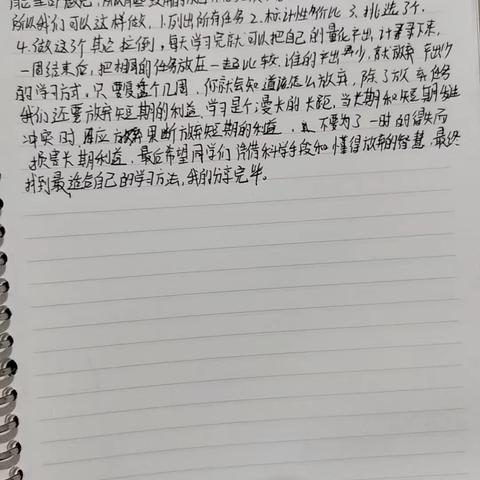 所以我们可以这样做，1.列出所有任务 2.标计性价比 3.挑选3个，
4.做这3个其它拉倒，每天学习完就可以把自己的量化产出，计录下来，
一周结束后，把相同的任务放在一起比较，谁的产出最少，就放弃
的学习方式，只要复盘几周，你就会知道该怎么放弃，除了放弃任务
我们还要放弃短期的利益，学习是个漫长的长跑，当长期和短期发生
冲突时，应放弃果断放弃短期的利益，不要为了一时的得失而
损害长期利益，最后希望同学们凭借科学手段和懂得放弃的智慧，最终
找到最适合自己的学习方法，我的分享完毕。